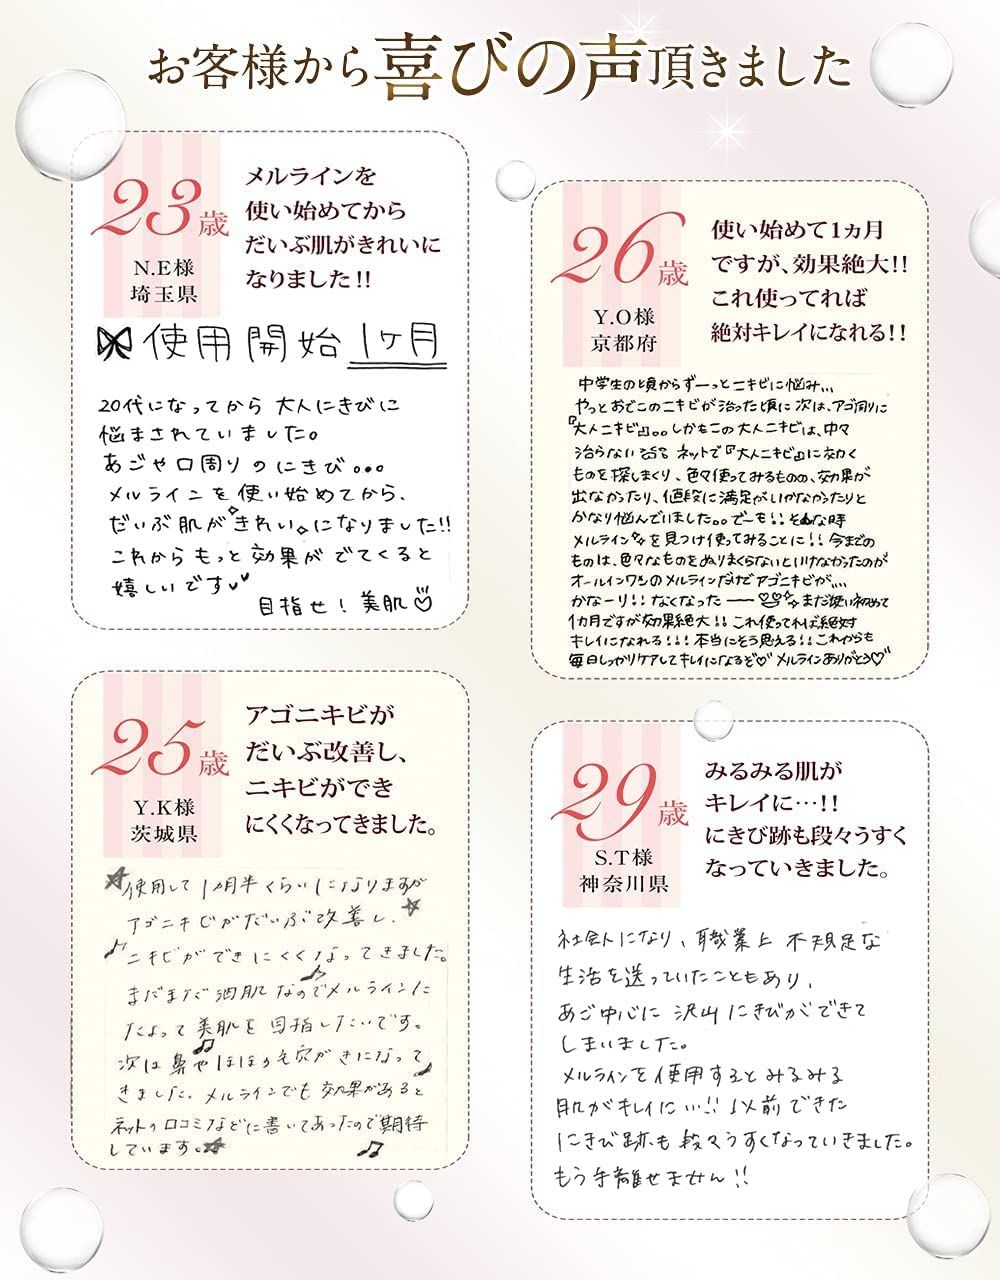 お客様から喜びの声頂きました
23歳
N.E様
埼玉県
メルラインを
使い始めてから
だいぶ肌がきれいに
なりました!!
使用開始 1ヶ月
20代になってから 大人にきびに
悩まされていました。
あごや口周りのにきび...
メルラインを使い始めてから、
だいぶ肌がきれいになりました!!
これからもっと効果がでてくると
嬉しいです
目指せ!美肌
26歳
Y.O様
京都府
使い始めて1ヵ月
ですが、効果絶大!!
これ使ってれば
絶対キレイになれる!!
中学生の頃からずーっとニキビに悩み...
やっとおでこのニキビが治った頃に次は、アゴ周りに
『大人ニキビ』。。しかもこの大人ニキビは、中々
治らない ネットで『大人ニキビ』に効く
ものを探しまくり、色々使ってみるものの、効果が
出なかったり、値段に満足がいかなかったりと
かなり悩んでいました。。でーも!!そんな時
メルラインを見つけ使ってみることに!!今までの
ものは、色々なものをぬりまくらないといけなかったのが
オールインワンのメルラインだけでアゴニキビが...
かなーり!!なくなったーー まだ使い初めて
1カ月ですが効果絶大!!これ使ってれば絶対
キレイになれる!!!本当にそう思える!!これからも
毎日しっかりケアしてキレイになるぞ♡メルラインありがとう♡
25歳
Y.K様
茨城県
アゴニキビが
だいぶ改善し、
ニキビができ
にくくなってきました。
使用して1カ月半くらいになりますが
アゴニキビがだいぶ改善し、
ニキビができにくくなってきました。
まだまだ油肌なのでメルラインに
たよって美肌を目指したいです。
次は鼻やほほの毛穴がきになって
きました。メルラインでも効果があると
ネットの口コミなどに書いてあったので期待
しています。
29歳
S.T様
神奈川県
みるみる肌が
キレイに…!!
にきび跡も段々うすく
なっていきました。
社会人になり、職業上 不規則な
生活を送っていたこともあり、
あご中心に 沢山にきびができて
しまいました。
メルラインを使用するとみるみる
肌がキレイに...!!以前できた
にきび跡も段々うすくなっていきました。
もう手離せません!!